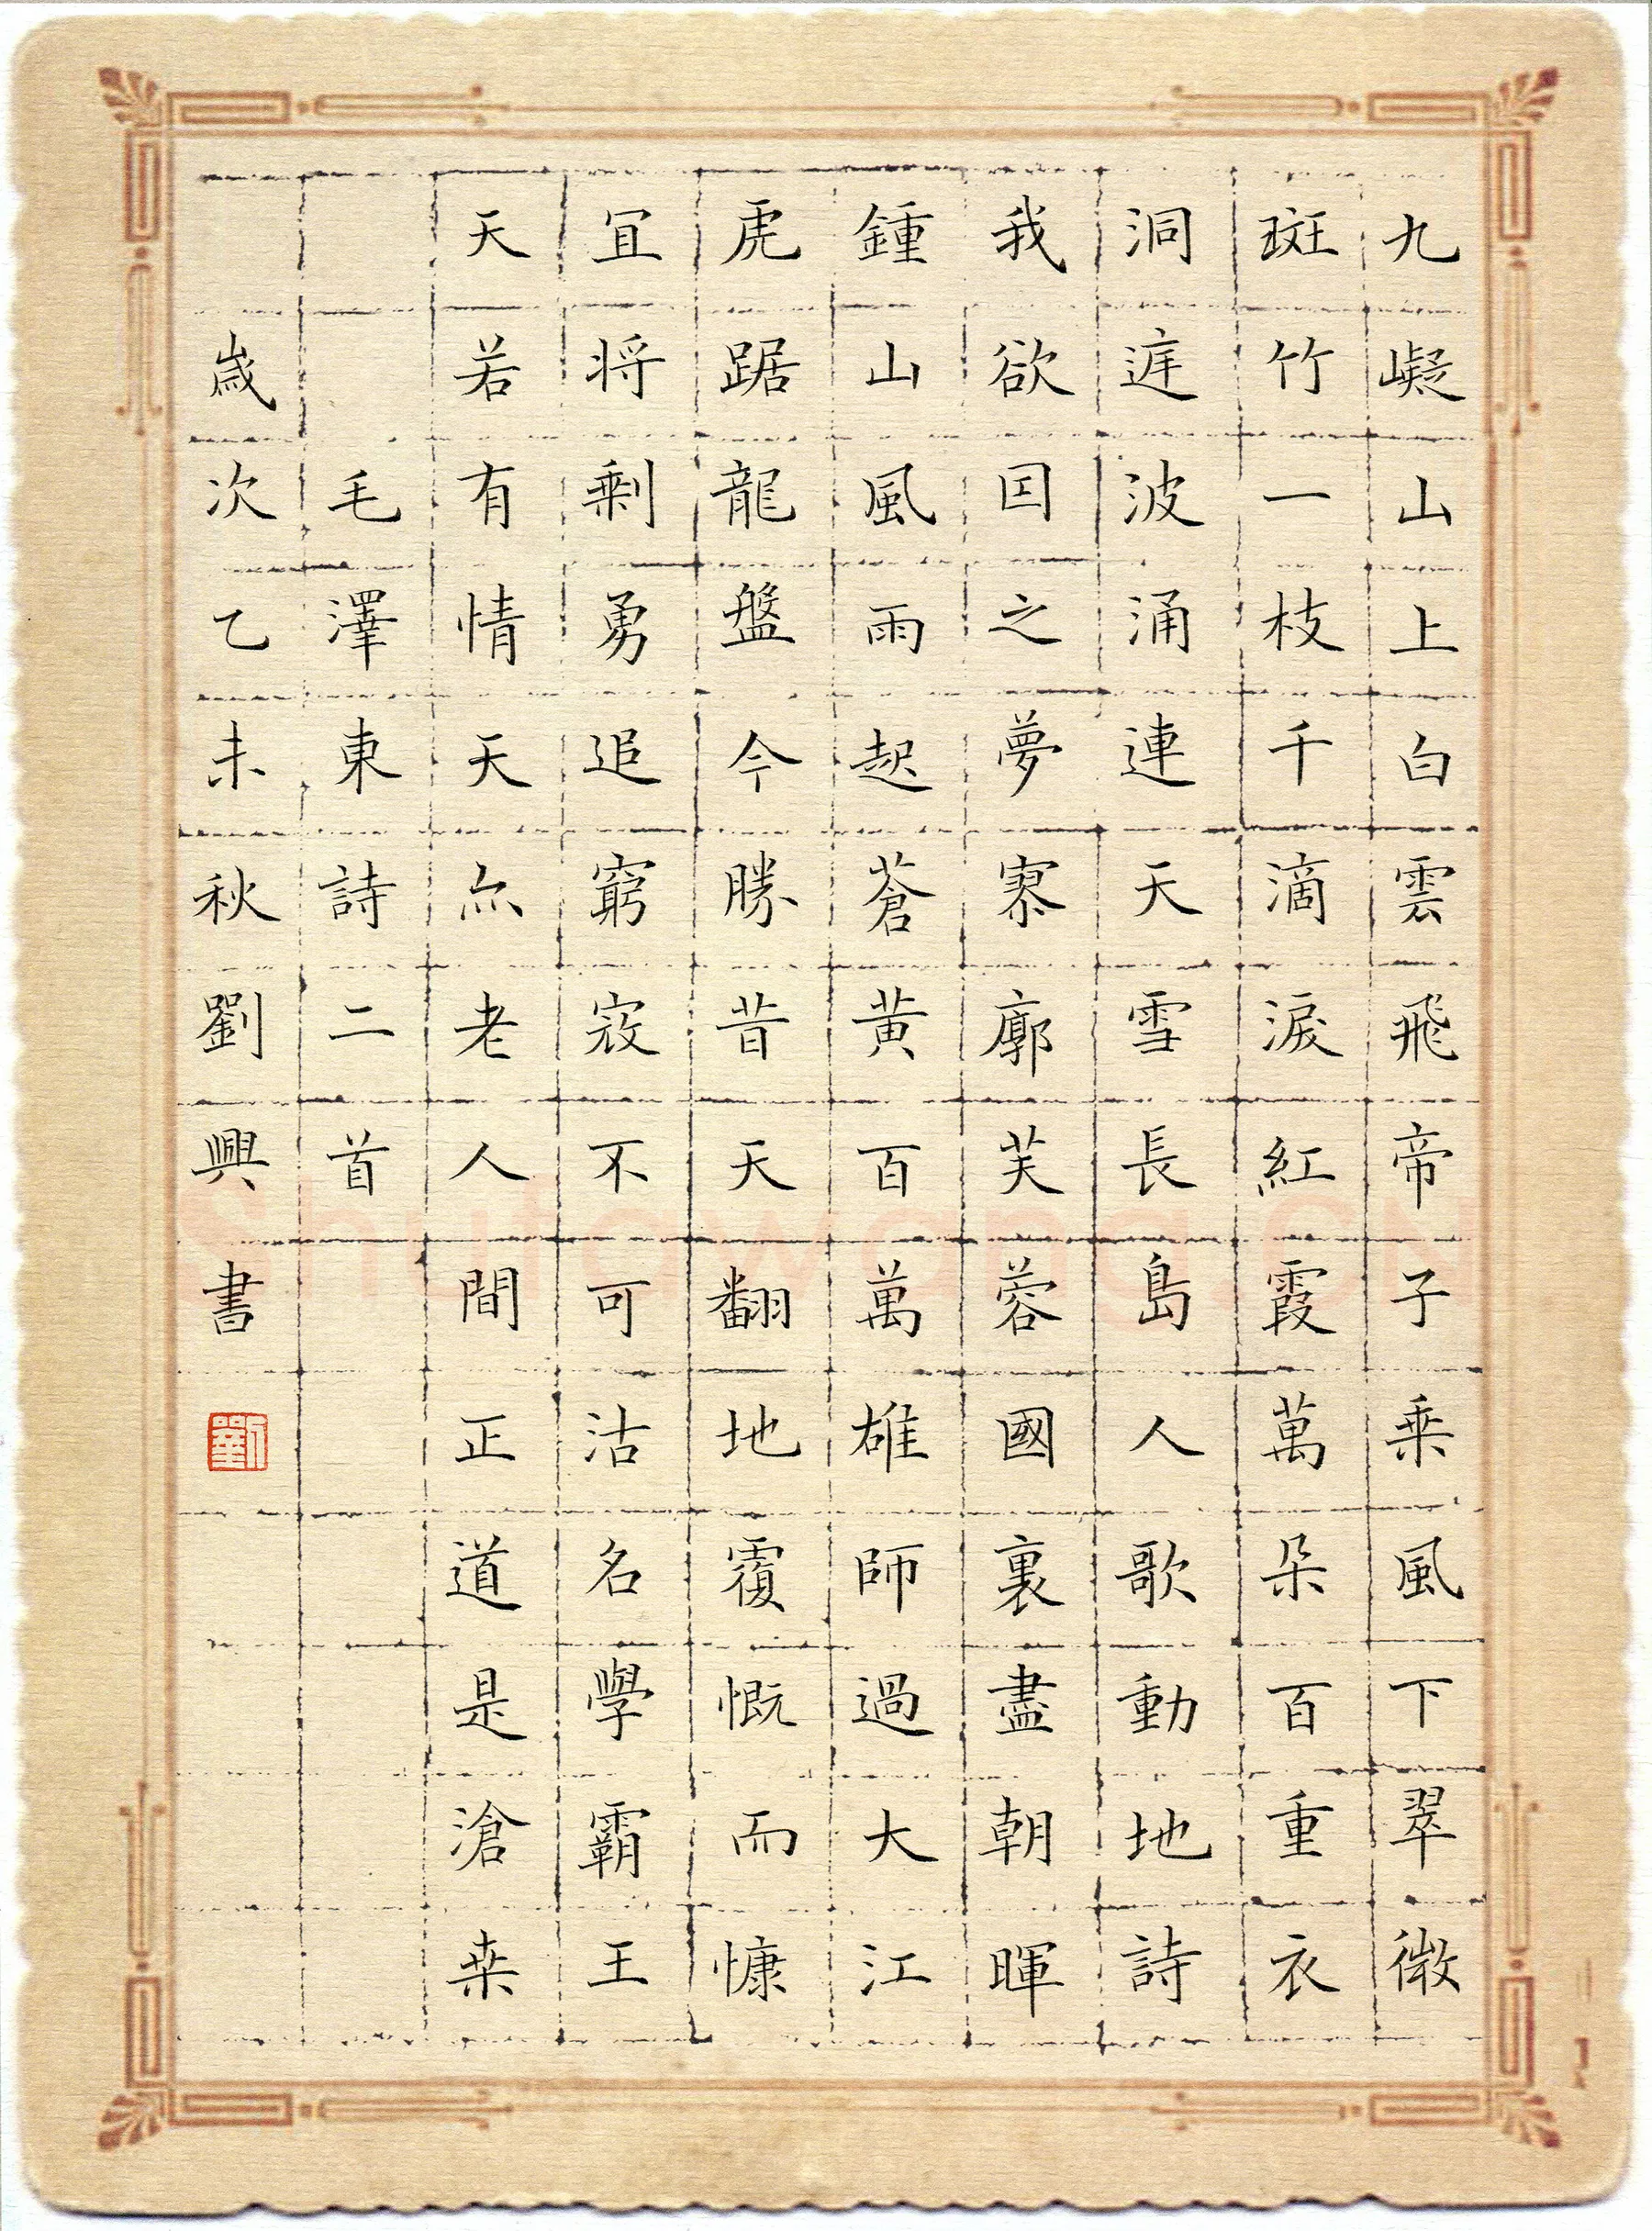 九嶷山上白雲飛帝子乗風下翠微
斑竹一枝千滴淚紅霞萬朵百重衣
洞庭波涌連天雪長島人歌動地詩
我欲因之夢寥廓芙蓉國裏盡朝暉
鍾山風雨起蒼黃百萬雄師過大江
虎踞龍盤今勝昔天翻地覆慨而慷
宜将剩勇追窮寇不可沽名學霸王
天若有情天亦老人間正道是滄桒
毛澤東詩二首
歲次乙未秋劉興書
劉